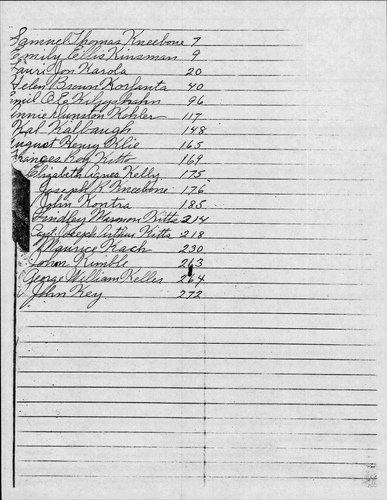 Samuel Thomas Kneebone 7
Emily Ellis Kinsman 9
Lauri Jon Karola 20
Helen Brown Korfanta 40
Emil O. E. 96
Annie Dunston Kohler 117
Kal Kalbaugh 148
August Henry Klie 165
Frances Roy Kitto 169
Elizabeth Agnes Kelly 175
Joseph K. Kneebone 176
John Kontra 185
Findlay Marmon Kitts 214
Capt. Joseph Arthur Kitts 218
Maurice Kach 230
John Kimble 263
George William Keller 264
John Key 272